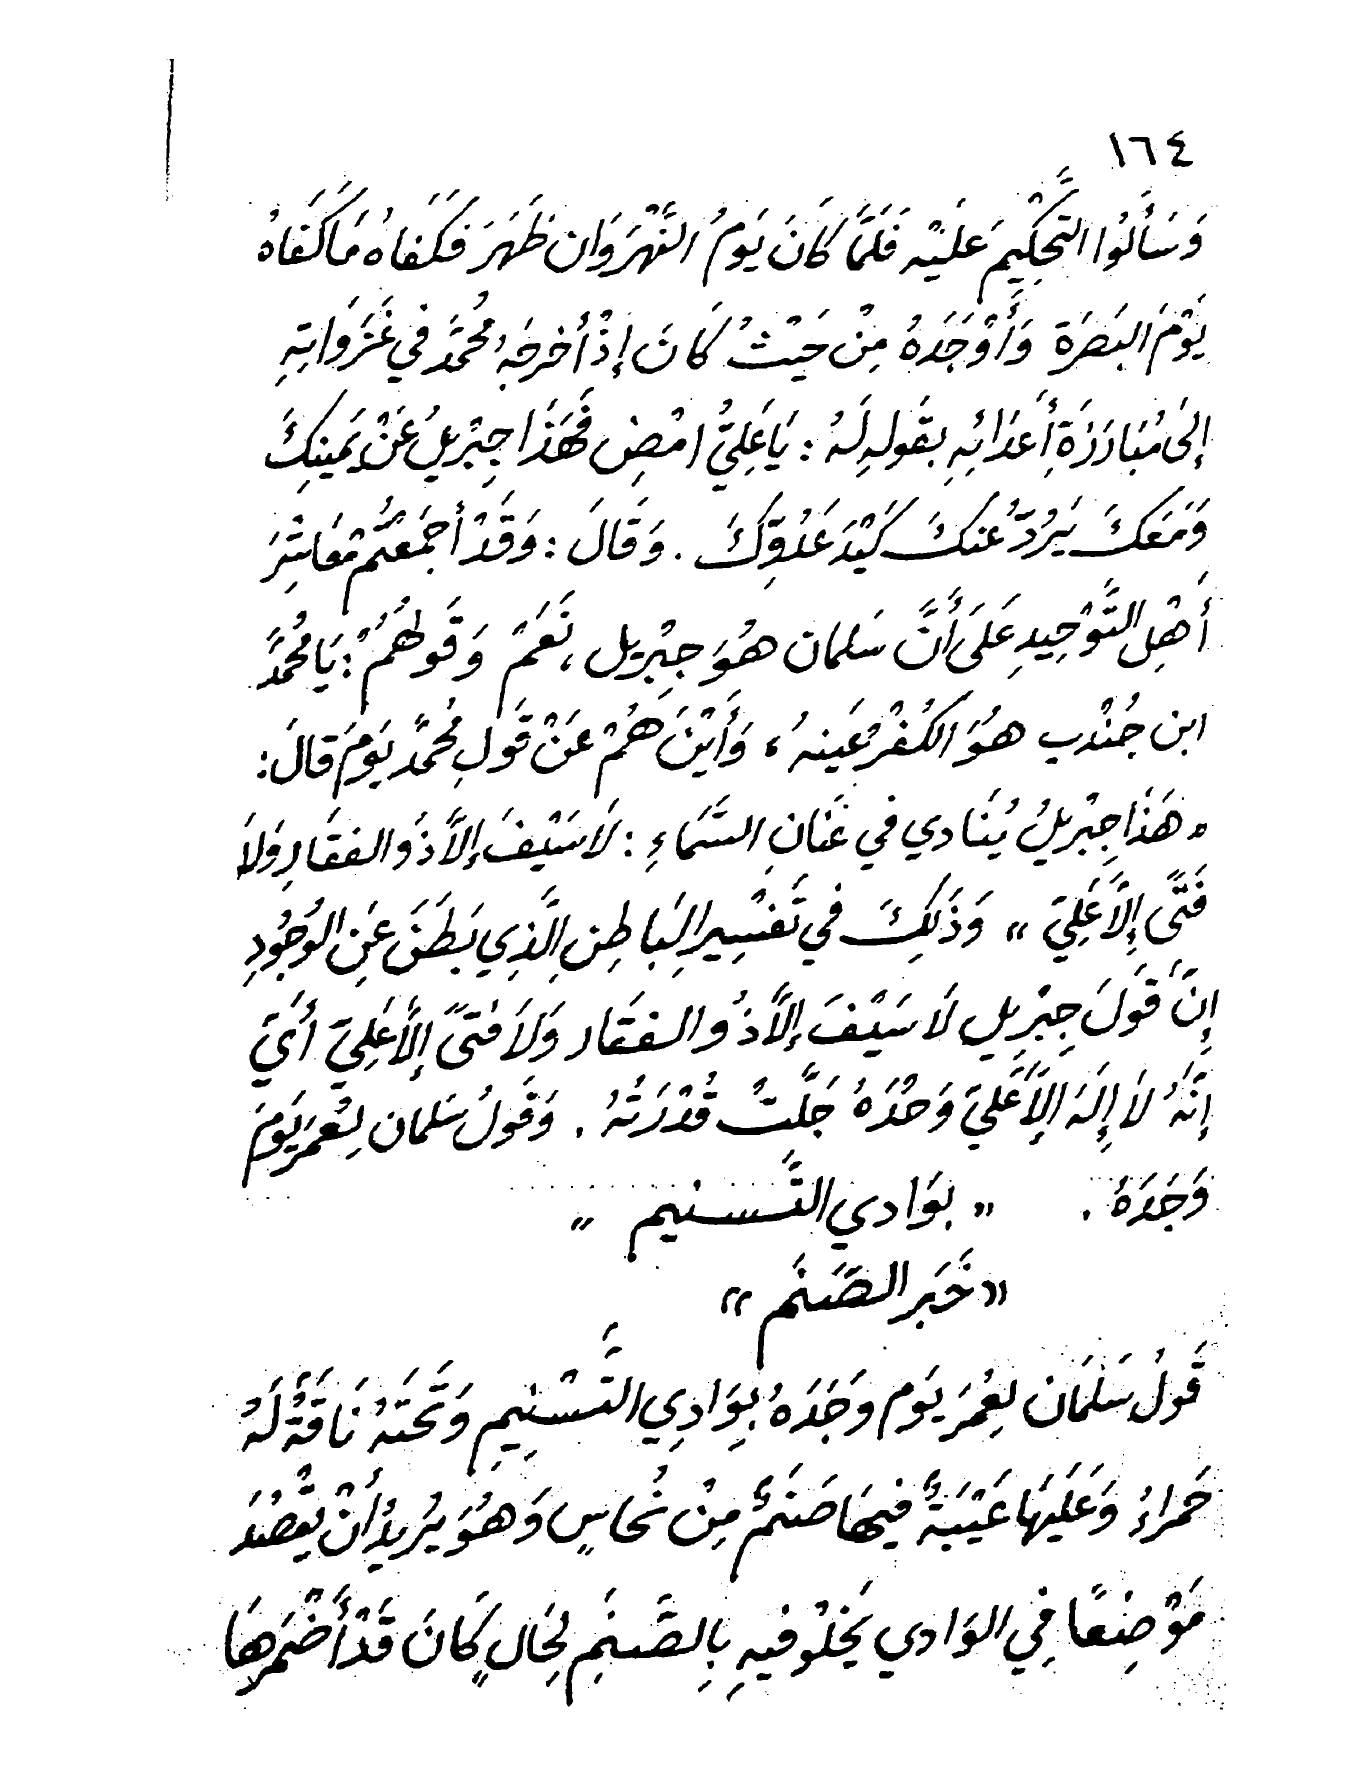 ١٦٤
وَسَأَلُوا التَّحْكِيمَ عَلَيْهِ فَلَمَّا كَانَ يَوْمُ النَّهْرَوَان ظَهَرَ فَكَفَاهُ مَا كَفَاهُ
يَوْمَ البَصْرَة وَأَوْجَدَهُ مِنْ حَيْثُ كَانَ إِذْ أَخرجَهُ مُحَمَّد في غَزَوَاتِهِ
إِلى مُبَادَرَةِ أَعدَائِهِ بقَولِهِ لَهُ : يَا عَلِيُّ امْضِ فَهَذَا جِبْرِيلُ عَنْ يَمينِكَ
وَمَعَكَ يَرُدّ عُنكَ كَيْدَ عَدُوِّكَ . وَقَالَ : وَقَدْ أَجمَعْتُمْ مْعَاشِرَ
أَهْلِ التَّوْحِيدِ عَلَى أَنَّ سَلمان هُوَ جِبْرِيل ، نَعَمْ وَقَولهُمُ : يَا مُحَمَّدَ
ابن جُنْدُب هُوَ الكُفْرُ عَينهُ ، وَأَيْنَ هُمْ عَنْ قَولِ مُحمَّد يَومَ قالَ :
« هَذَا جِبْرِيلُ يُنَادي في عَنَانِ السَّمَاءِ : لَا سَيْفَ إِلَّا ذُو الفقَارِ وَلَا
فَتًى إِلَّا عَلِيّ » وَذَلِكَ في تَفسِيرِ البَاطِنِ الَّذِي بَطَنَ عَنِ الوُجُودِ
إِنَّ قَولَ جِبْرِيل لَا سَيْفَ إِلَّا ذُو الفقَار وَلَا فتًى إِلَّا عَلِيّ أَيّ
إِنَّهُ لَا إِلَهَ إِلَّا عَلِيّ وَحْدَهُ جَلَّتْ قُدْرَتُهُ . وَقَولُ سَلمان لِعُمَرَ يَومَ
وَجَدَهُ . « بوَادي التَّسنيم »
« خَبَر الصَّنَم »
قَولُ سَلمَان لِعُمَرَ يَوم وَجَدَهُ بِوَادِي التَّسْنِيمِ وَتَحْتَهُ نَاقَةٌ لَهُ
حَمراءُ وَعَلَيهَا عَيْبَةٌ فيهَا صَنَمٌ مِنْ نُحَاسٍ وَهُوَ يُرِيدُ أَنْ يَقْصُدَ
مَوْضِعًا فِي الوَادي يَخلُو فيهِ بِالصَّنَمِ لِحَالٍ كَانَ قَدْ أَضْمَرهَا